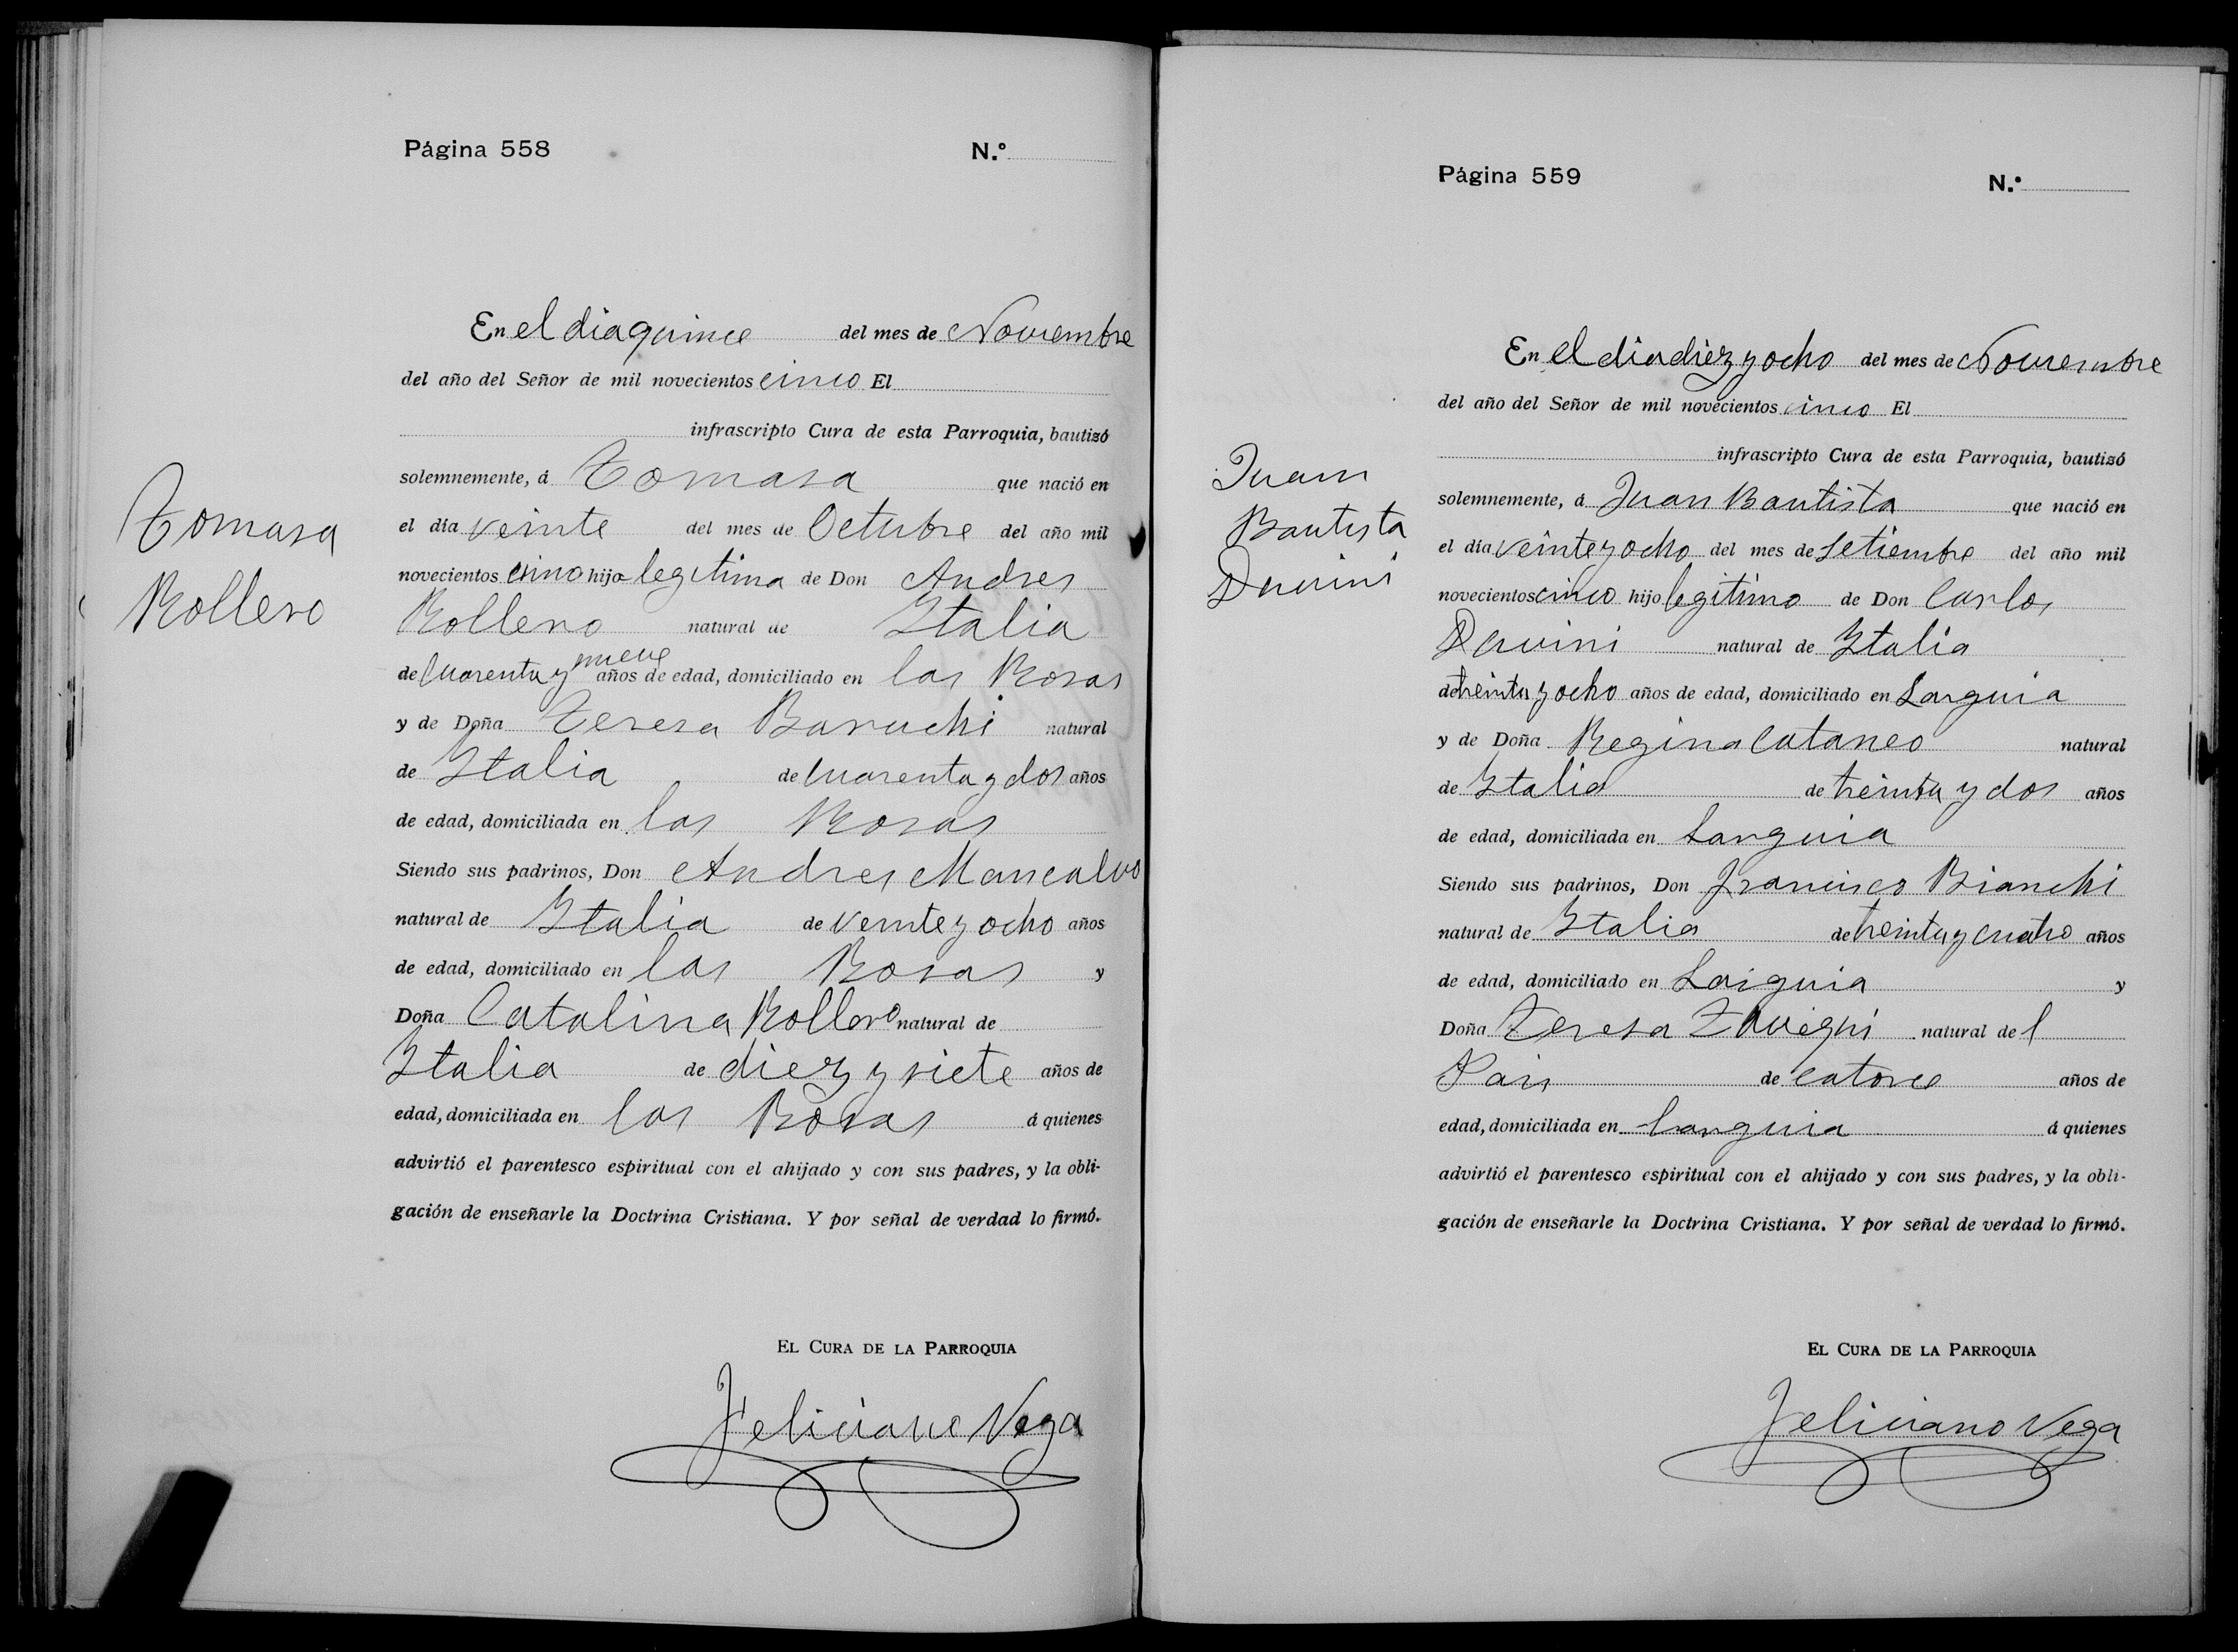 Página 558
N.º
En el dia quince del mes de Noviembre
del año del Señor de mil novecientos cinco El
infrascripto Cura de esta Parroquia, bautizó
solemnemente, á Tomasa que nació en
el día veinte del mes de Octubre del año mil
novecientos cinco hijo legitima de Don Andres
Rollero natural de Italia
de cuarenta y nueve años de edad, domiciliado en las Rosas
y de Doña Teresa Baruchi natural
de Italia de cuarenta y dos años
de edad, domiciliada en las Rosas
Siendo sus padrinos, Don Andres Mancalvo
natural de Italia de veinte y ocho años
de edad, domiciliado en las Rosas y
Doña Catalina Rollero natural de
Italia de diez y siete años de
edad, domiciliada en las Rosas á quienes
advirtió el parentesco espiritual con el ahijado y con sus padres, y la obli-
gación de enseñarle la Doctrina Cristiana. Y por señal de verdad lo firmó.
EL CURA DE LA PARROQUIA
Feliciano Vega
Tomasa
Rollero
Página 559
N.º
En el dia diez y ocho del mes de Noviembre
del año del Señor de mil novecientos cinco El
infrascripto Cura de esta Parroquia, bautizó
solemnemente, á Juan Bautista que nació en
el día veinte y ocho del mes de Setiembre del año mil
novecientos cinco hijo legitimo de Don Carlos
Davini natural de Italia
de treinta y ocho años de edad, domiciliado en Larguia
y de Doña Regina Cataneo natural
de Italia de treinta y dos años
de edad, domiciliada en Larguia
Siendo sus padrinos, Don Francisco Bianchi
natural de Italia de treinta y cuatro años
de edad, domiciliado en Larguia y
Doña Teresa natural del
Pais de catorce años de
edad, domiciliada en Larguia á quienes
advirtió el parentesco espiritual con el ahijado y con sus padres, y la obli-
gación de enseñarle la Doctrina Cristiana. Y por señal de verdad lo firmó.
EL CURA DE LA PARROQUIA
Feliciano Vega
Juan
Bautista
Davini